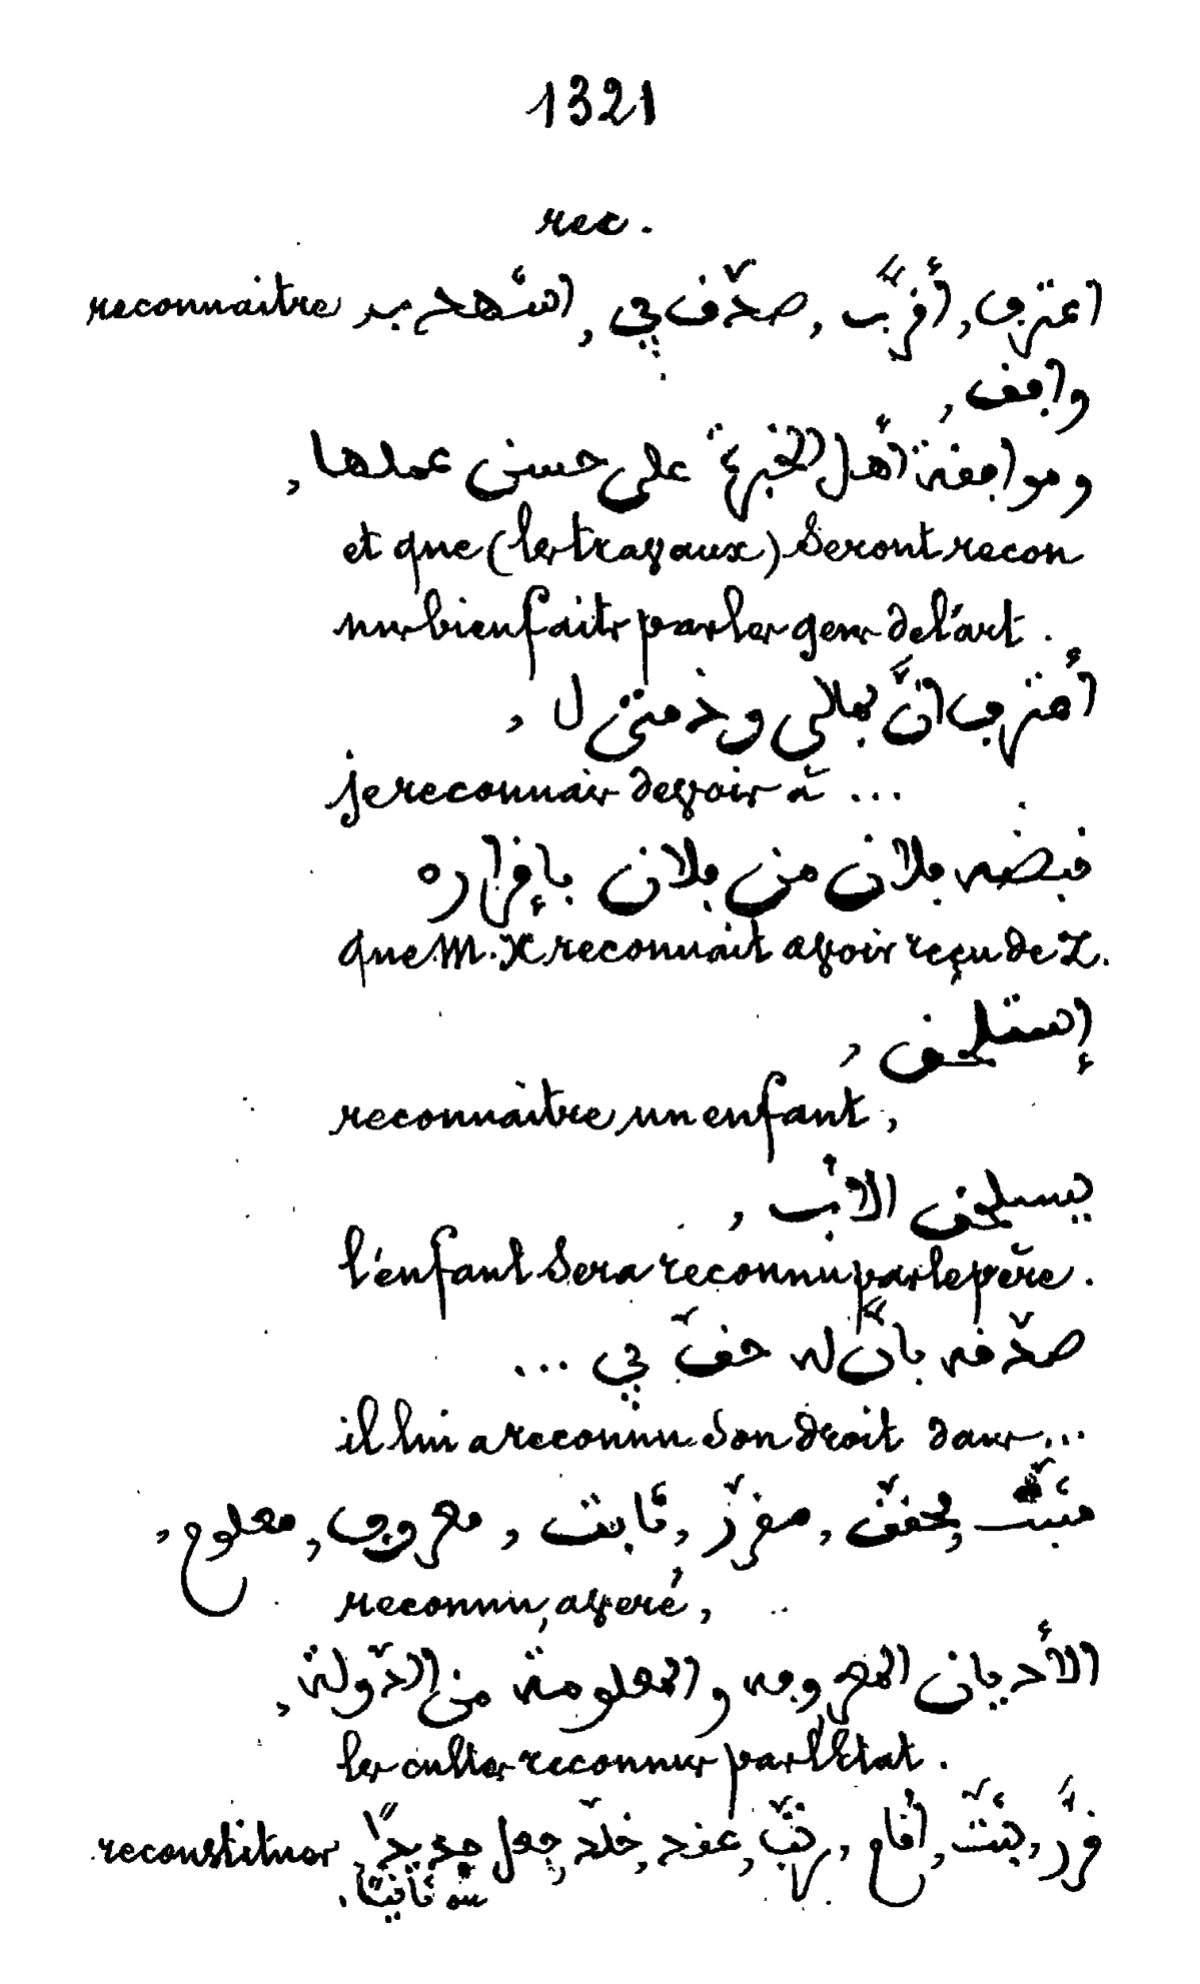 1321
rec.
reconnaitre اعترف, أقرّ ب, صدّق في, استشهد بـ
وافق,
وموافقة أهل الخبرة على حسن عملها,
et que (les travaux) seront recon
nus bien faits par les gens de l'art.
أعترف انّ بمالي وذمتي ل,
je reconnais devoir à ...
قبضه فلان من فلان بإقراره
que M. X reconnait avoir reçu de Z.
إستلحق,
reconnaitre un enfant,
يستلحق الأب,
l'enfant sera reconnu par le père.
صدّقه بأنّ له حقّ في ...
il lui a reconnu son droit dans ...
مثبّت, محقّق, مقرّر, ثابت, معروف, معلوم,
reconnu, avéré,
الأديان المعروفه والمعلومة من الدّولة,
les cultes reconnus par l'Etat.
reconstituer قرّر, بيّت, أقام, رتّب, عقد, خلّد, جعل جديدًا,
ثانيًا.